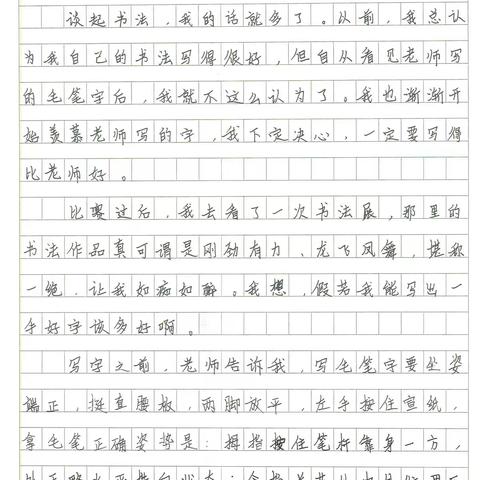 谈起书法，我的话就多了。从前，我总认
为我自己的书法写得很好，但自从看见老师写
的毛笔字后，我就不这么认为了。我也渐渐开
始羡慕老师写的字，我下定决心，一定要写得
比老师好。
比赛过后，我去看了一次书法展，那里的
书法作品真可谓是刚劲有力、龙飞凤舞，堪称
一绝，让我如痴如醉。我想，假若我能写出一
手好字该多好啊。
写字之前，老师告诉我，写毛笔字要坐姿
端正，挺直腰板，两脚放平，左手按住宣纸，
拿毛笔正确姿势是：拇指按住笔杆靠身一方，